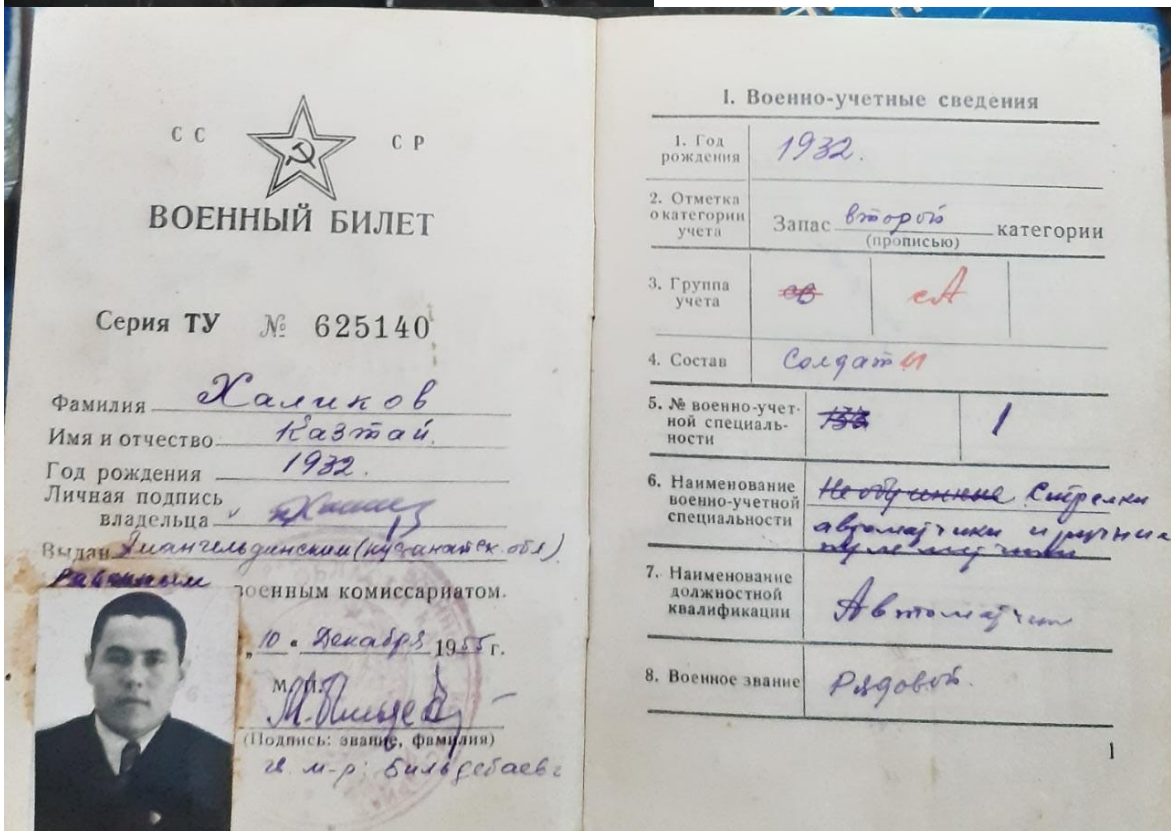 СС СР
ВОЕННЫЙ БИЛЕТ
Серия ТУ № 625140
Фамилия Халиков
Имя и отчество Казтай.
Год рождения 1932.
Личная подпись
владельца
Выдан (кустанайск. обл)
Районным военным комиссариатом.
„10" Декабря 1955 г.
М. П.
(Подпись: звание, фамилия)
м-р: Бильдебаев
I. Военно-учетные сведения
1. Год
рождения 1932.
2. Отметка
о категории
учета Запас второй категории
(прописью)
3. Группа
учета св сА
4. Состав Солдаты
5. № военно-учет-
ной специаль-
ности 133 1
6. Наименование
военно-учетной
специальности Необученные Стрелки
автоматчики и ручные
пулеметчики
7. Наименование
должностной
квалификации Автоматчик
8. Военное звание Рядовой.
1